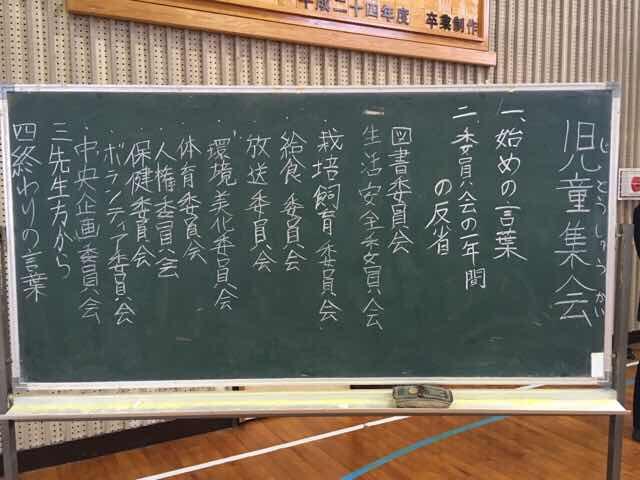 平成二十四年度 卒業制作
児童集会
じどうしゅうかい
一、始めの言葉
二、委員会の一年間
の反省
図書委員会
生活安全委員会
・栽培飼育委員会
・給食委員会
・放送委員会
・環境美化委員会
・体育委員会
・人権委員会
・保健委員会
・ボランティア委員会
・中央企画委員会
三先生方から
四終わりの言葉